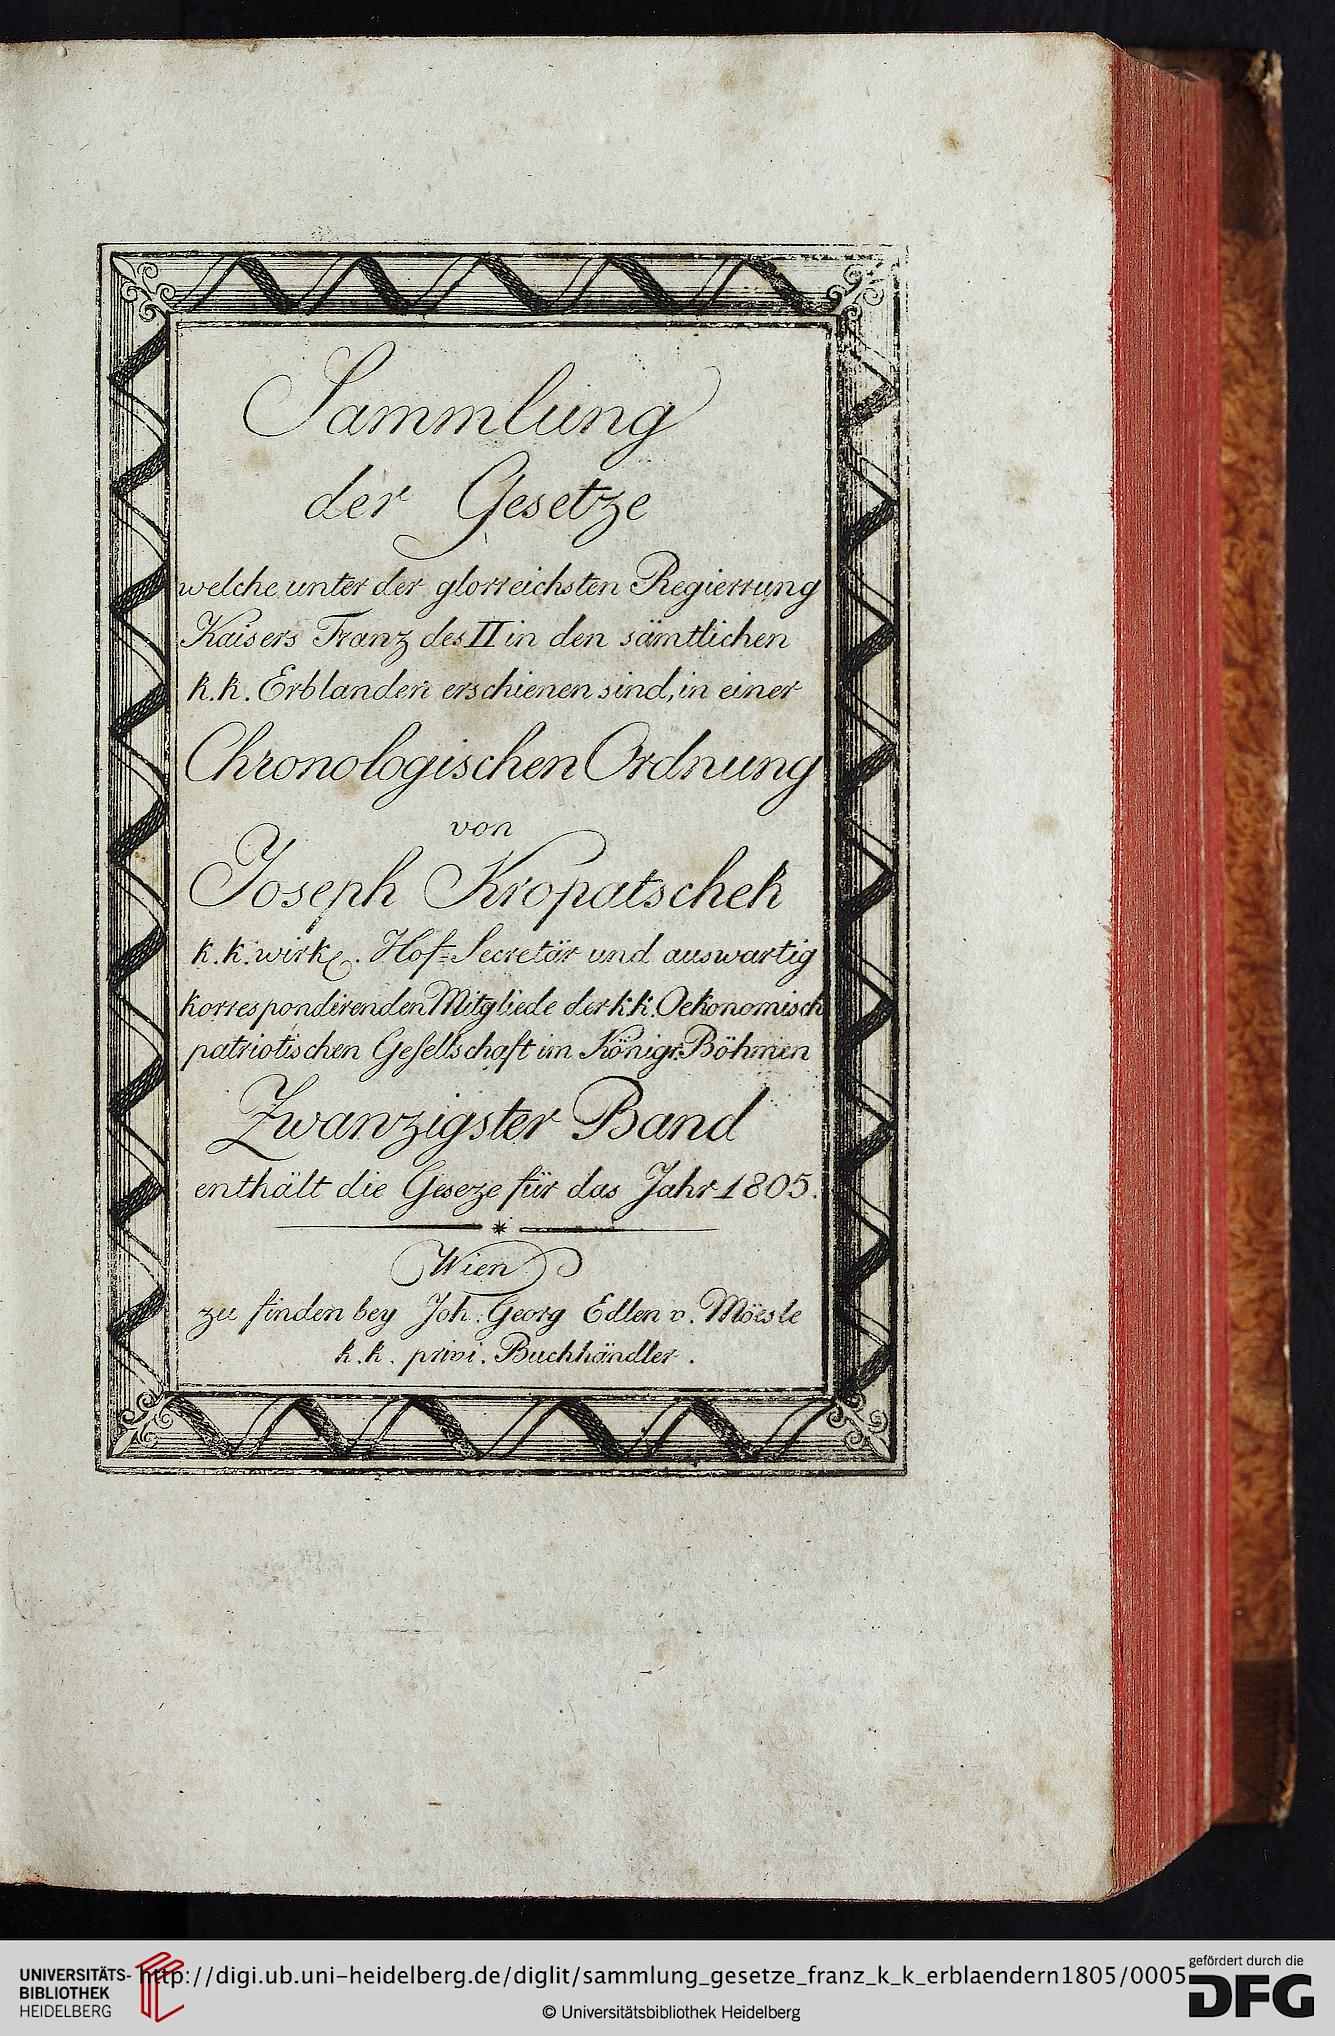 Sammlung
der Gesetze
welche unter der glorreichsten Regierrung
Kaisers Franz des II in den sämtlichen
k.k. Erblandern erschienen sind, in einer
Chronologischen Ordnung
von
Joseph Kropatschek
k.k. wirkl. Hof-Secretär und auswartig
korrespondirenden Mitgliede der k.k. Oekonomisch
patriotischen Gesellschaft im Königr. Böhmen
Zwanzigster Band
enthält die Geseze für das Jahr 1805.
Wien
zu finden bey Joh. Georg Edlen v. Möesle
k.k. privi. Buchhändler.
UNIVERSITÄTS-
BIBLIOTHEK
HEIDELBERG
http://digi.ub.uni-heidelberg.de/diglit/sammlung_gesetze_franz_k_k_erblaendern1805/0005
© Universitätsbibliothek Heidelberg
gefördert durch die
DFG